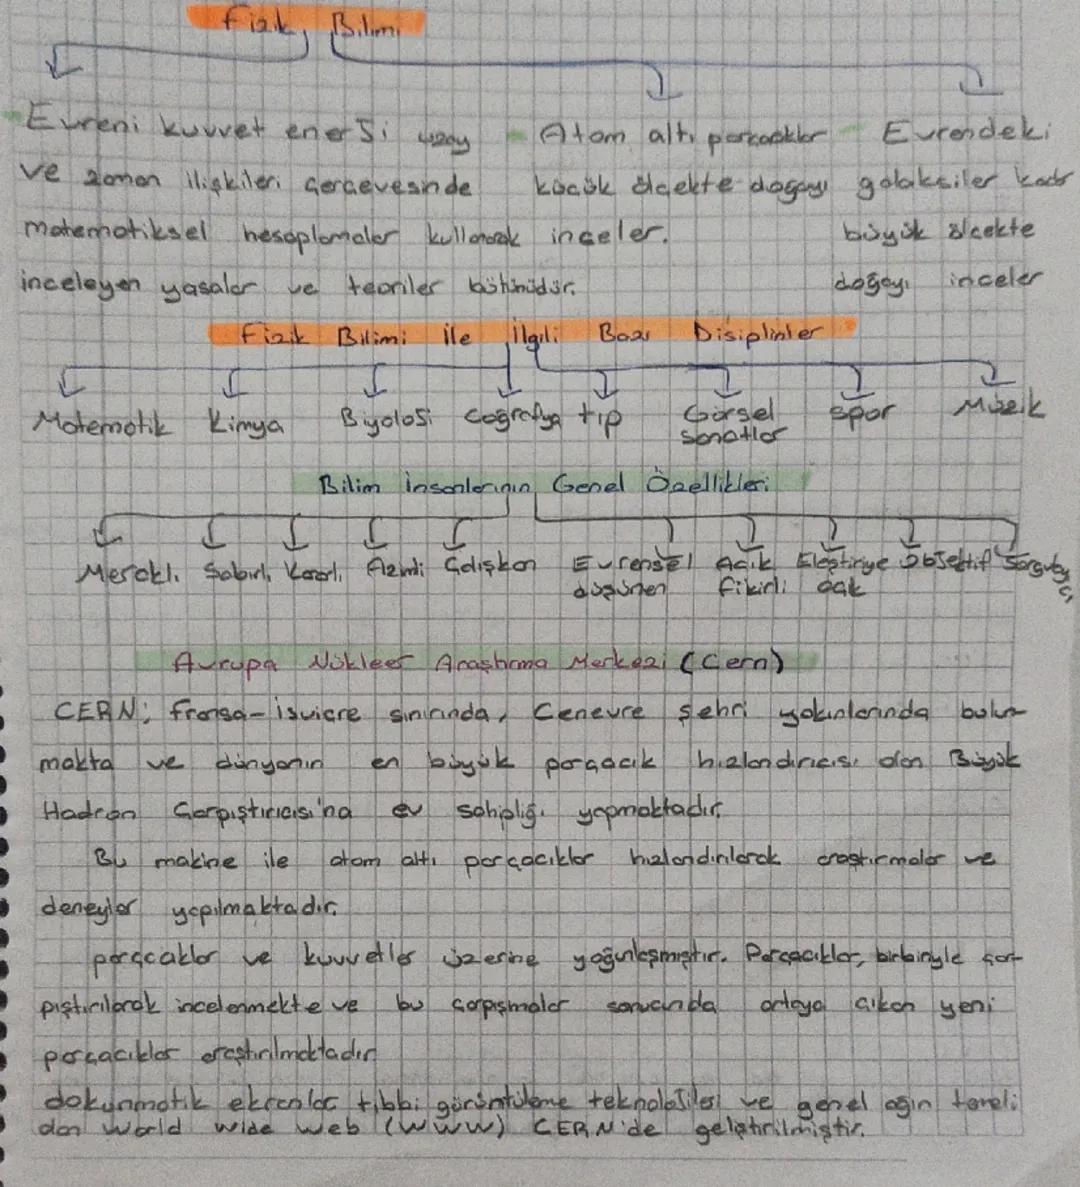 Fizik Bilimi
Evreni kuvvet enerji uzay
ve zaman ilişkileri çerçevesinde
matematiksel hesaplamalar kullanarak
inceleyen yasalar ve teoriler bütünüdür.
Atom altı parçacıklar
küçük ölçekte doğayı
inceler.
Evrendeki
galaksiler kadar
büyük ölçekte
doğayı inceler
Fizik Bilimi ile ilgili Bazı Disiplinler
Matematik Kimya Biyoloji Coğrafya tıp Görsel sanatlar spor Müzik
Bilim insanlarının Genel Özellikleri
Meraklı Sabırlı Kararlı Azimli Çalışkan Evrensel düşünen Açık fikirli Eleştiriye açık Objektif Sorgulayıcı
Avrupa Nükleer Araştırma Merkezi (Cern)
CERN; fransa-isviçre sınırında, Cenevre şehri yakınlarında bulun-
makta ve dünyanın en büyük parçacık hızlandırıcısı olan Büyük
Hadron Çarpıştırıcısı'na ev sahipliği yapmaktadır.
Bu makine ile atom altı parçacıklar hızlandırılarak araştırmalar ve
deneyler yapılmaktadır.
parçcaklar ve kuvvetler üzerine yoğunlaşmıştır. Parçacıklar, birbiriyle çar-
pıştırılarak incelenmekte ve bu çarpışmalar sonucunda ortaya çıkan yeni
parçacıklar araştırılmaktadır
dokunmatik ekranlar tıbbi görüntüleme teknolojileri ve genel ağın temeli
olan World wide web (www) CERN'de geliştirilmiştir.